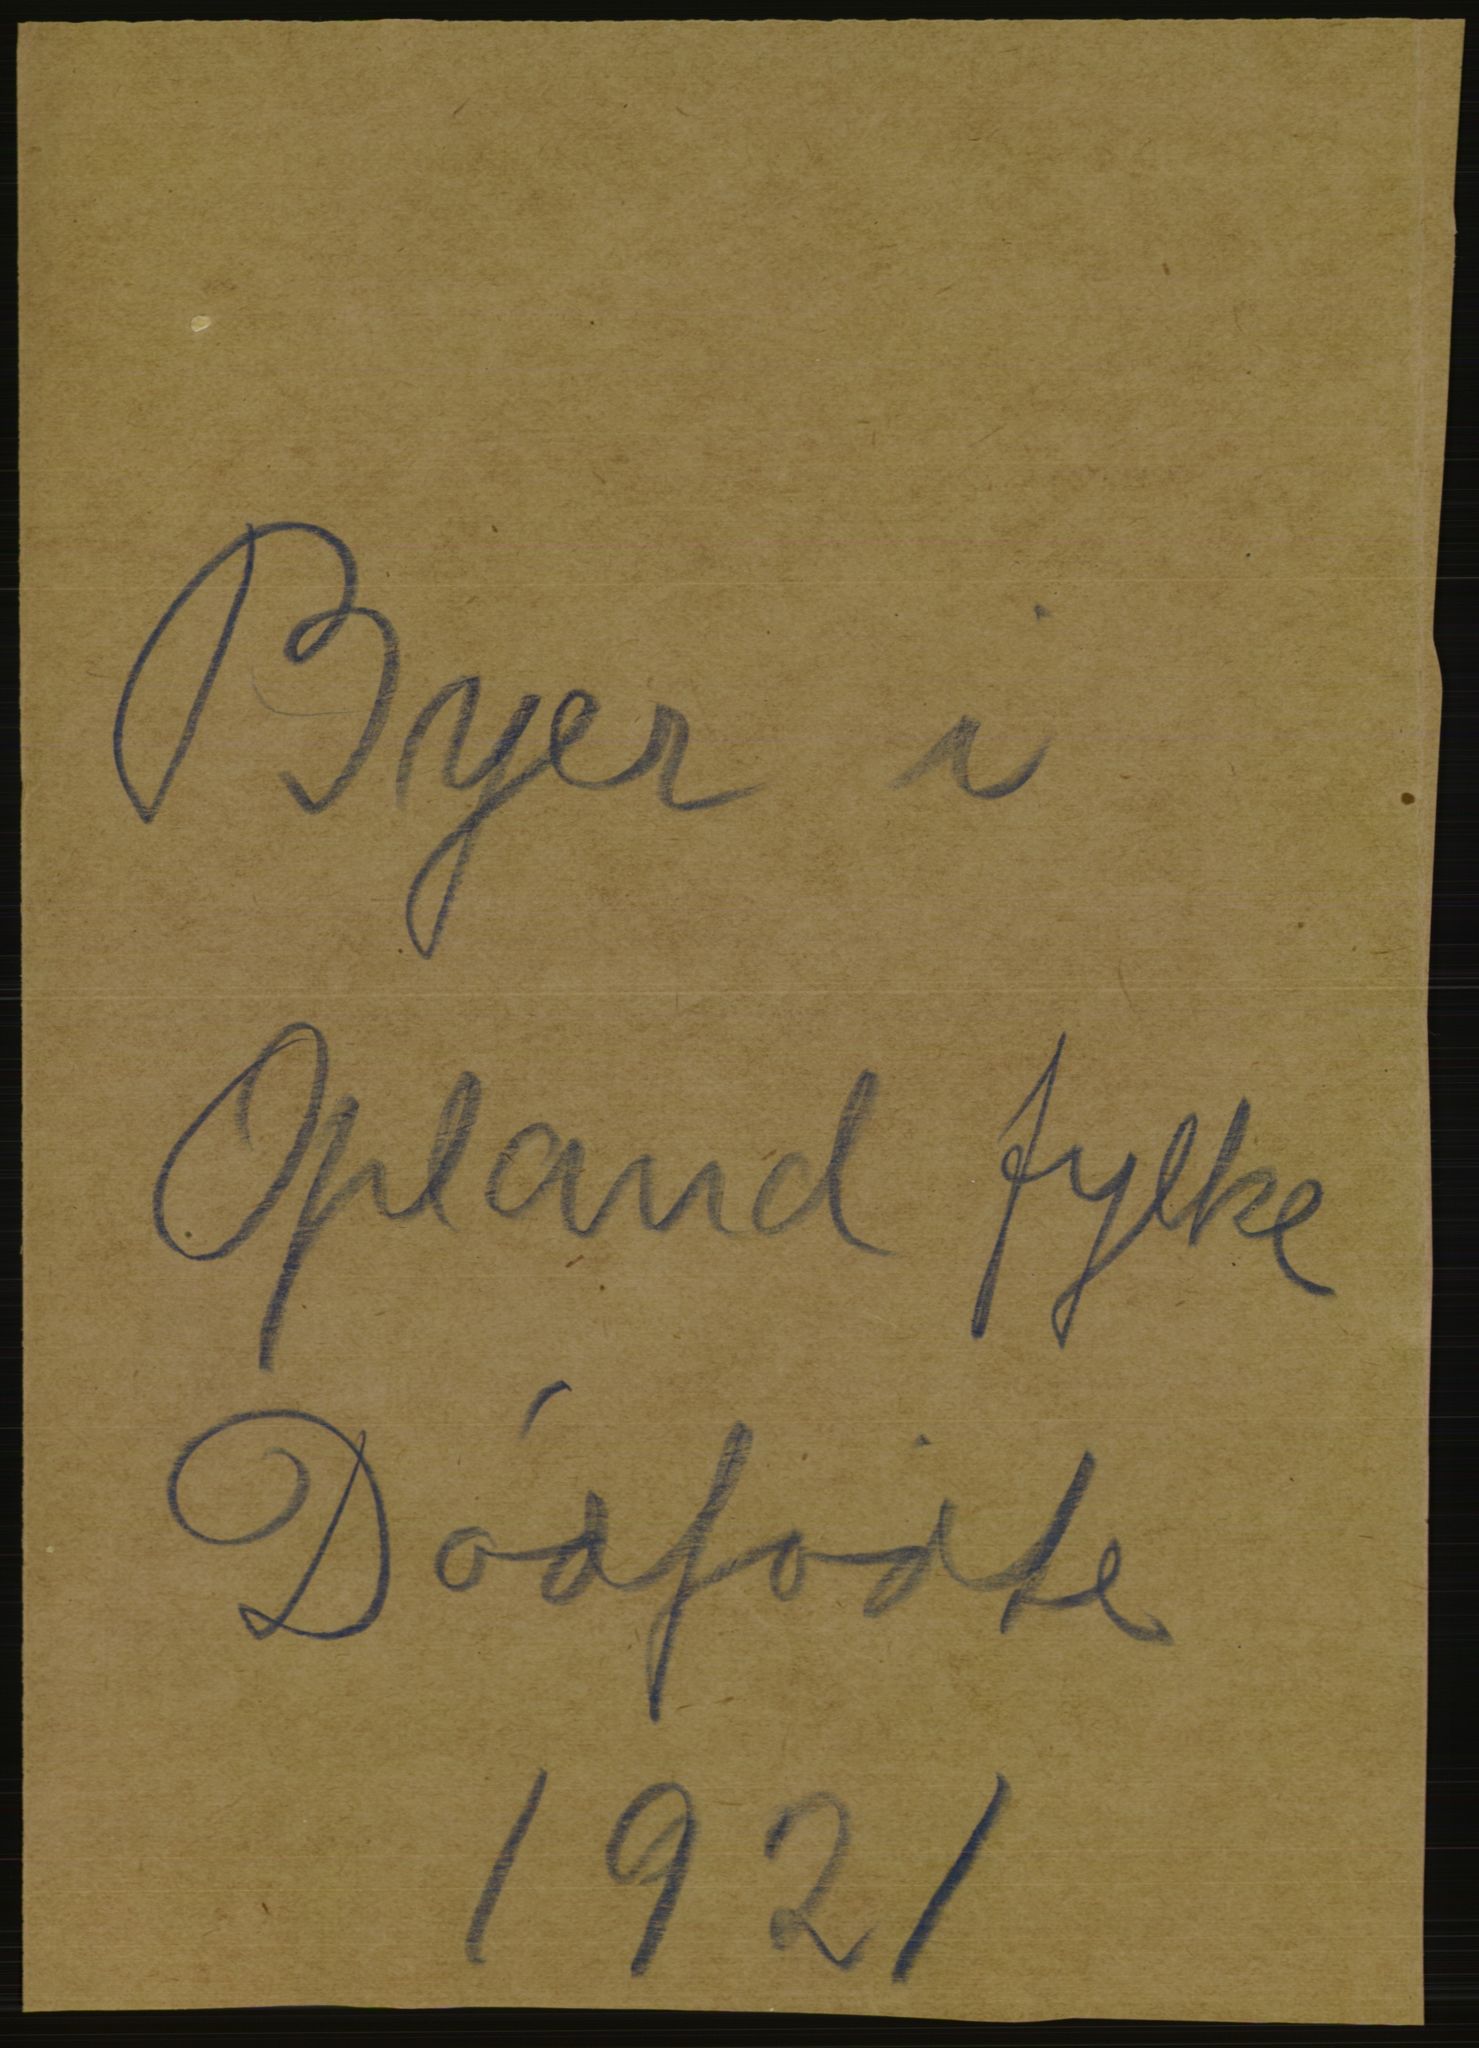 Byer i
Opland fylke
Dødfødte
1921